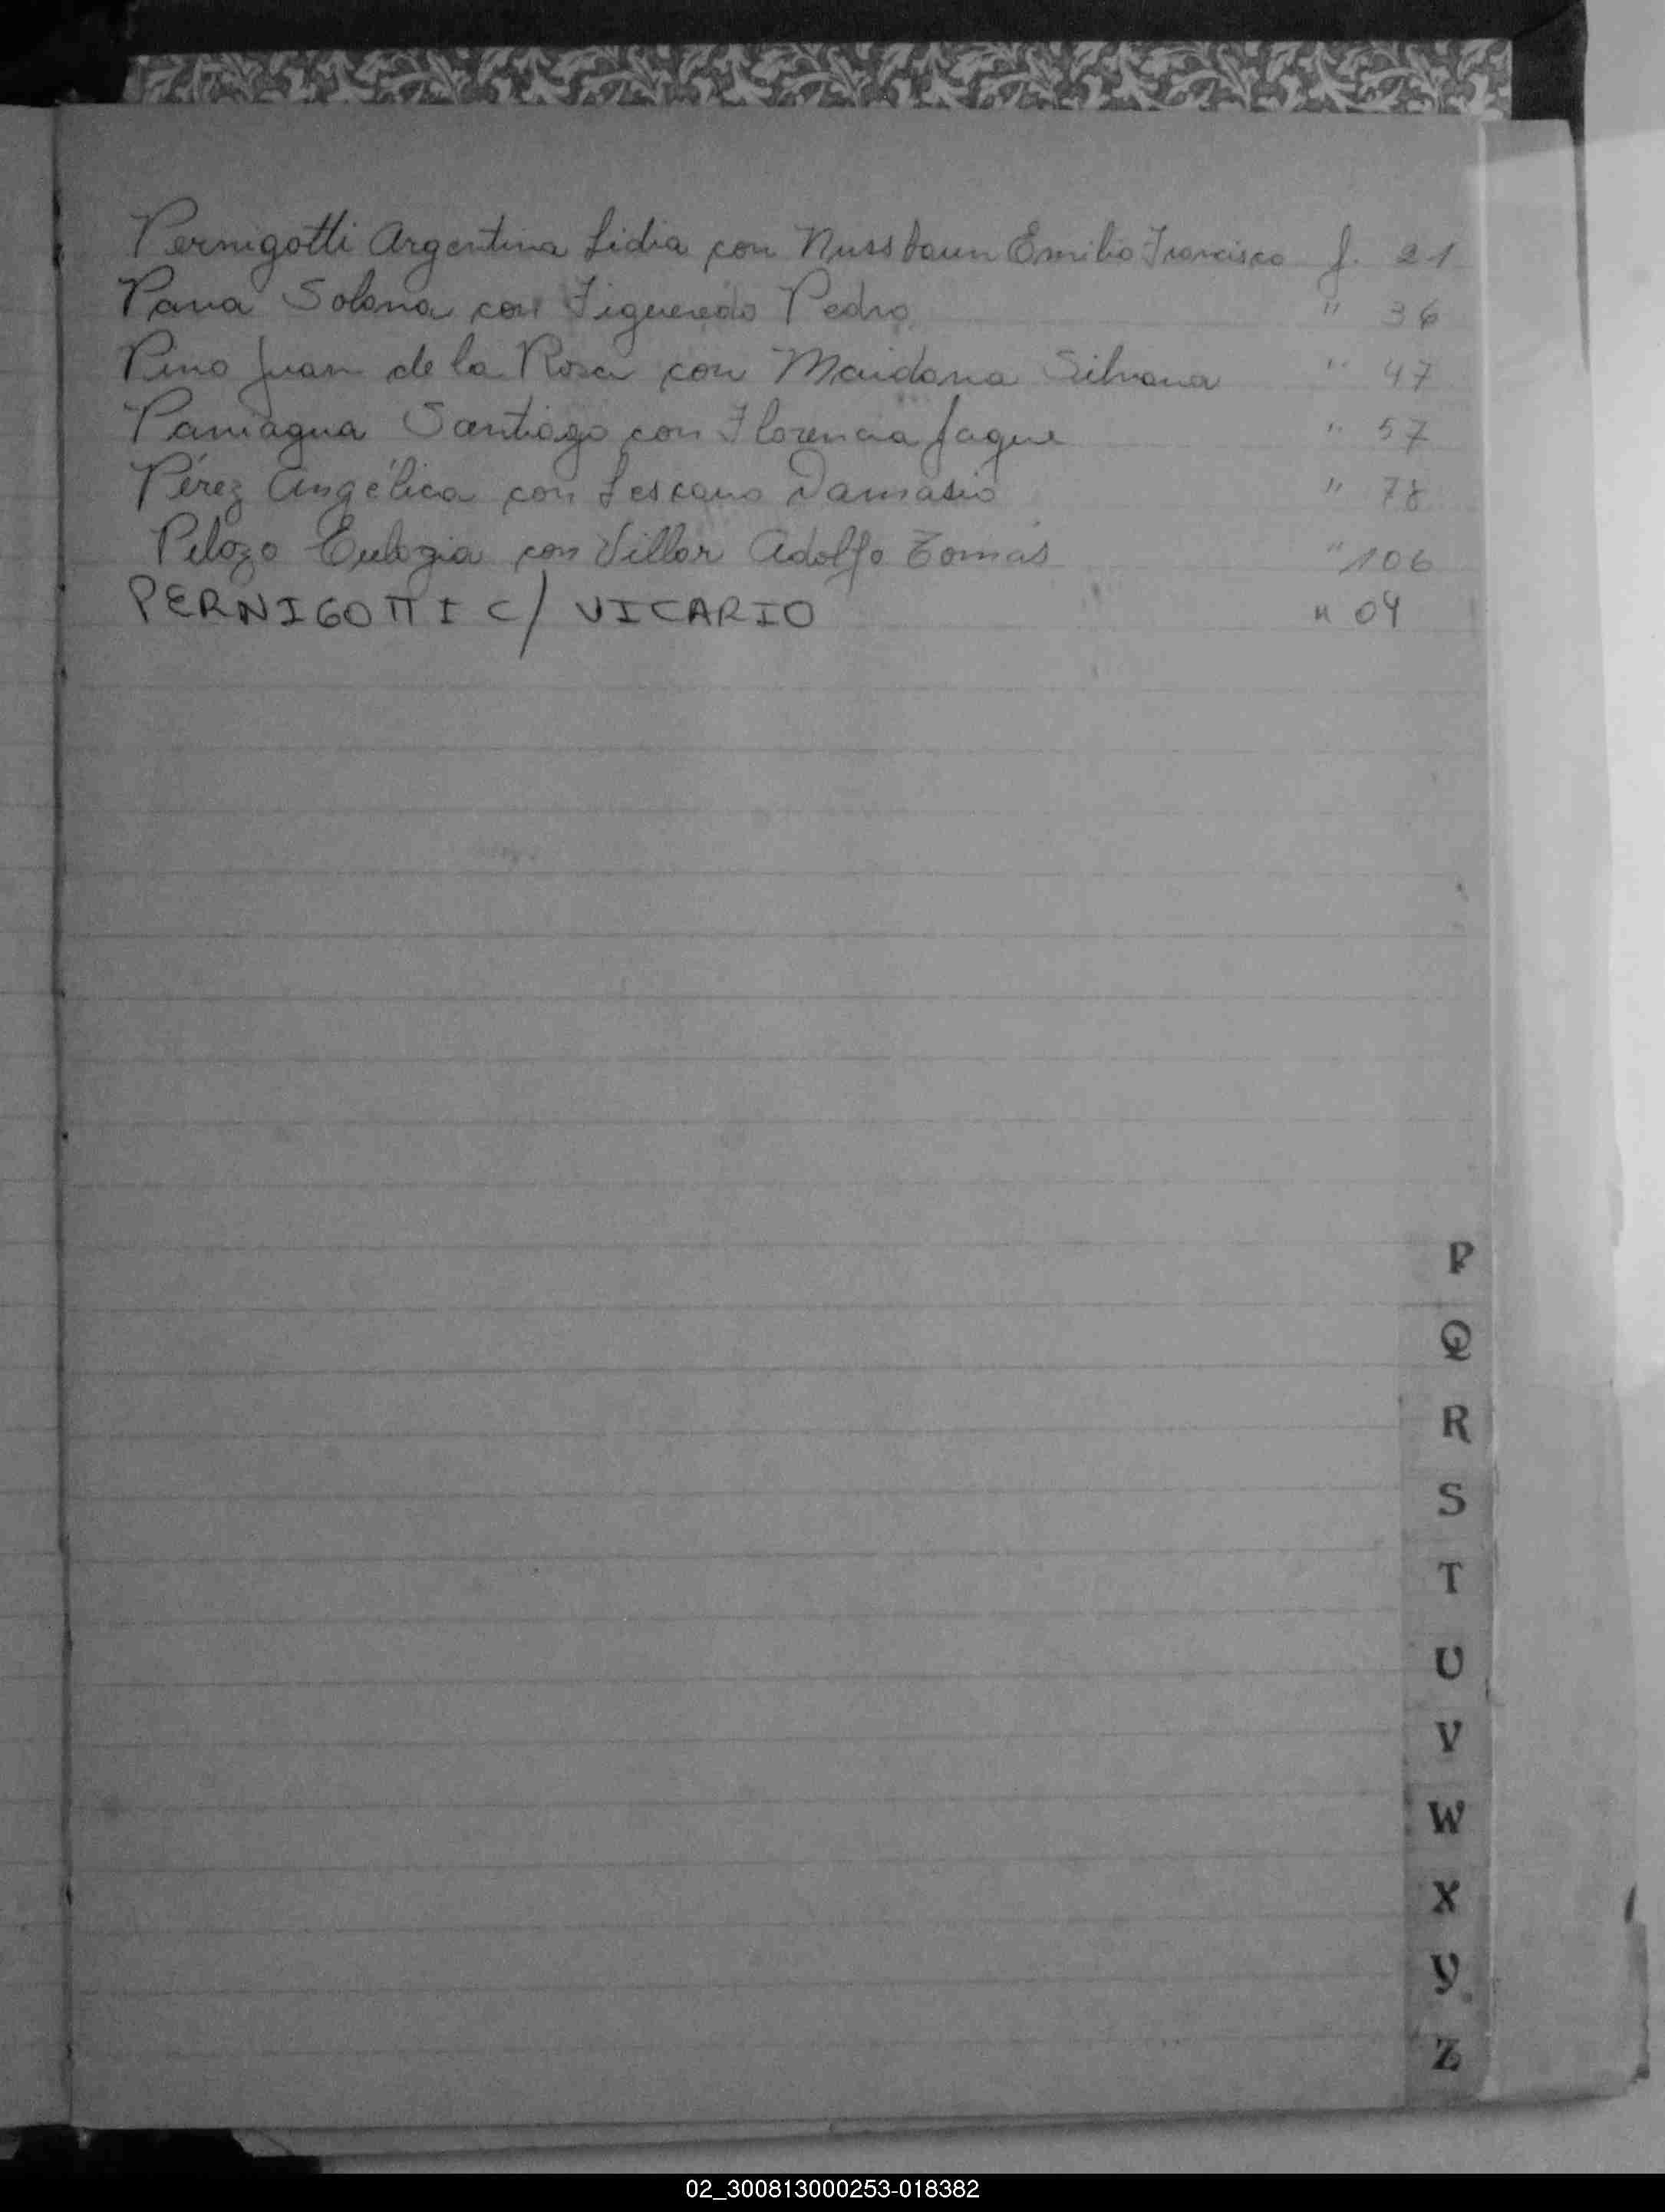 Pernigotti Argentina Lidia con Nussbaun Emilio Francisco f. 21
Pava Solana con Figueredo Pedro " 36
Pino Juan de la Rosa con Maidana Silvana " 47
Paniagua Santiago con Florencia Jaque " 57
Pérez Angélica con Lescano Damasio " 78
Pelozo Eulogia con Villar Adolfo Tomás " 106
PERNIGOTTI C/ VICARIO " 04
P
Q
R
S
T
U
V
W
X
Y
Z
02_300813000253-018382